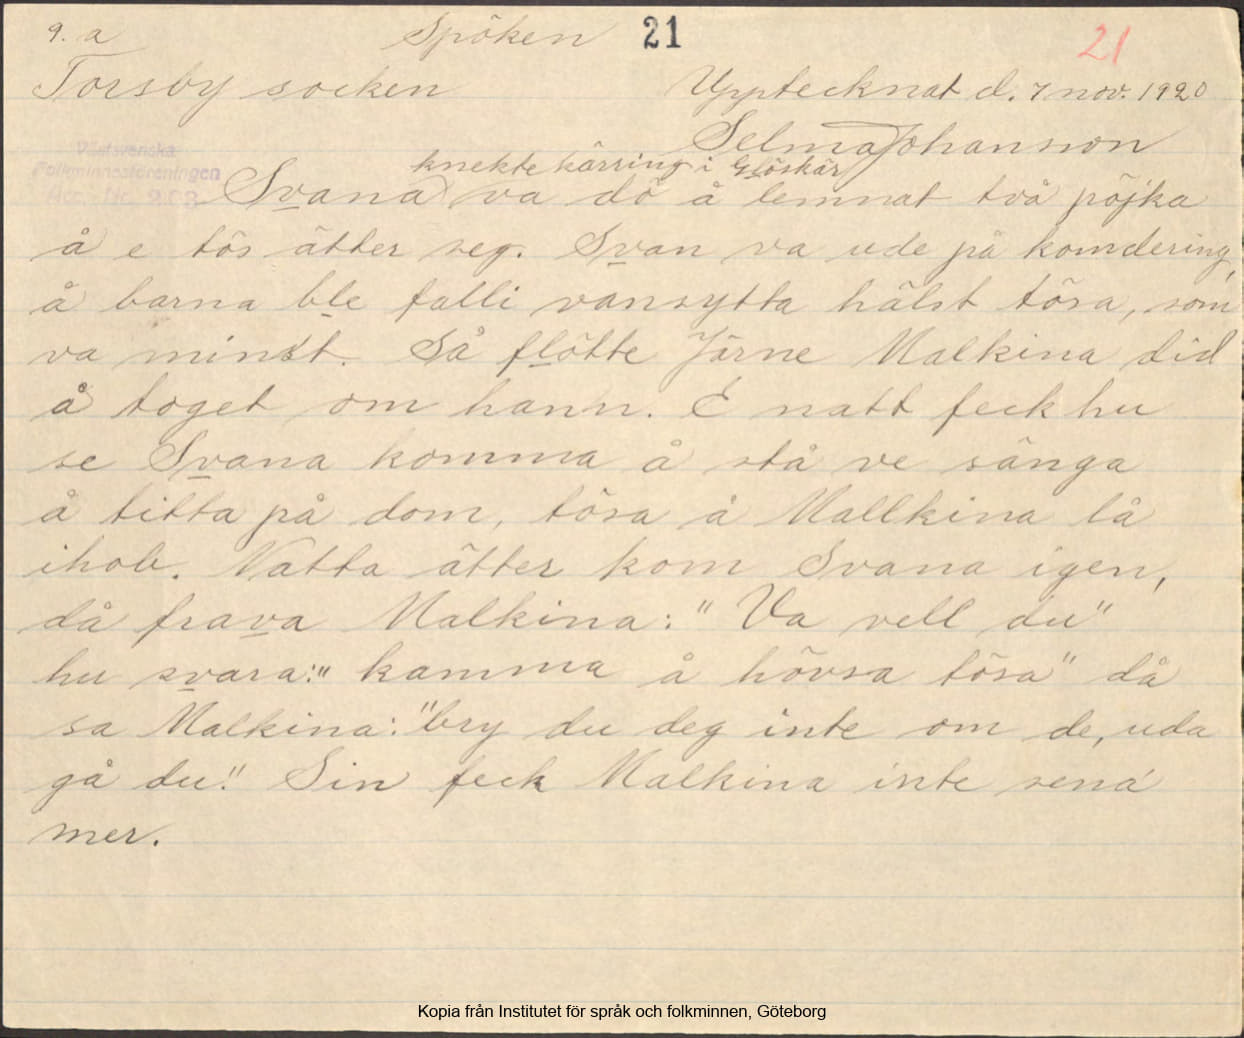 9. a Spöken 21 21
Torsby socken Upptecknat d. 7 nov. 1920
Selma Johansson
Västsvenska
Folkminnesföreningen
Acc. Nr. 203
knektekärring i Glöskär
Svana va dö å lemnat två pöjka
å e tös ätter seg. Svan va ude på komdering,
å barna ble falli vansytta hälst tösa, som
va minst. Så flötte Järne Malkina did
å toget om hann. E natt feck hu
se Svana komma å stå ve sänga
å titta på dom, tösa å Mallkina lå
ihob. Natta ätter kom Svana igen,
då frava Malkina: "Va vell du"
hu svara: "kamma å hövsa tösa" då
sa Malkina: "bry du deg inte om de, uda
gå du". Sin feck Malkina inte sena
mer.
Kopia från Institutet för språk och folkminnen, Göteborg